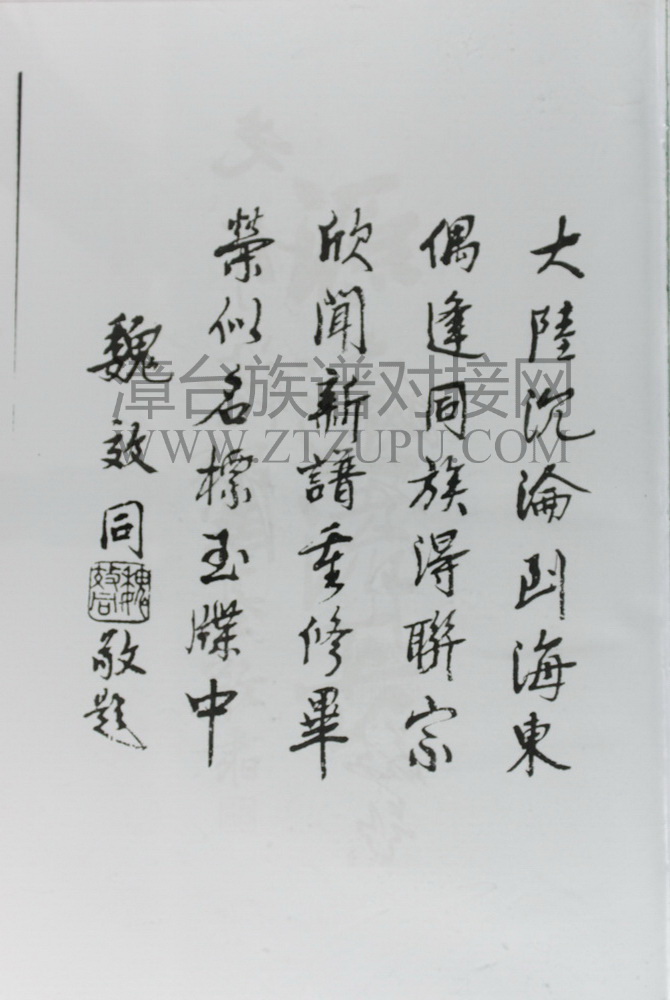 大陸沉淪到海東
偶逢同族得聯宗
欣聞新譜重修畢
榮似名標玉牒中
魏效同敬題
魏效同
漳台族谱对接网
WWW.ZTZUPU.COM